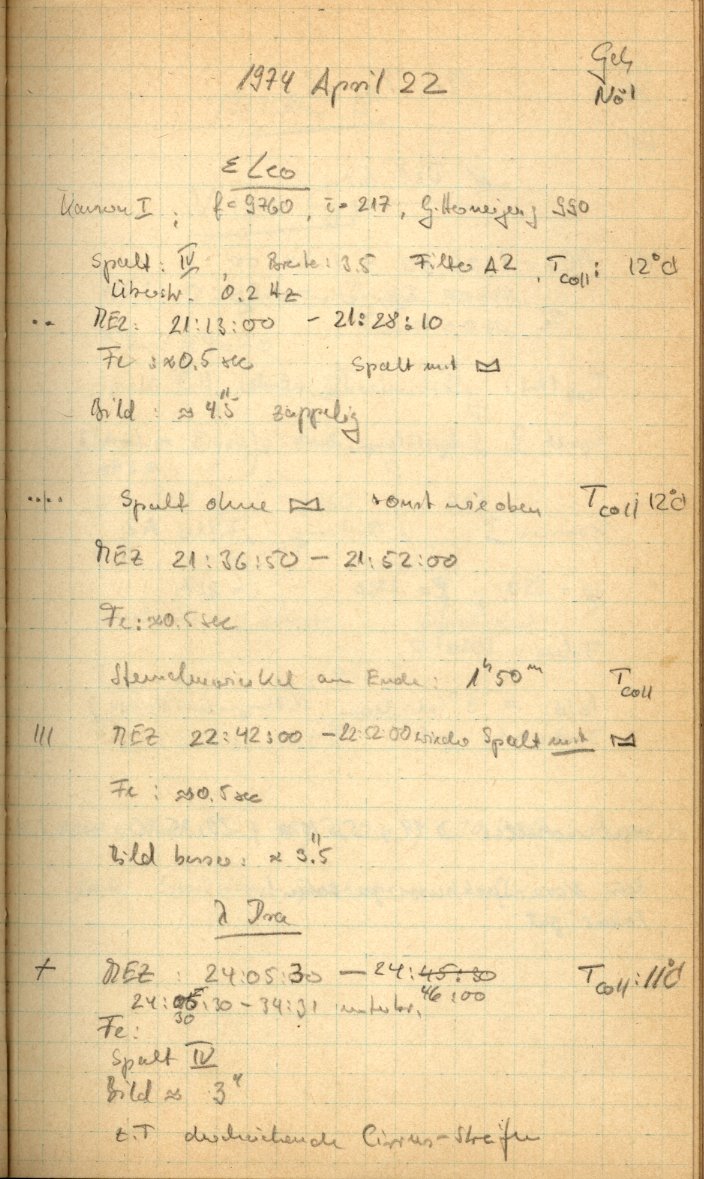 1974 April 22
Geh
Nöl
ε Leo
Kamera I ; f = 9760, τ = 217, Gitterneigung 990
Spalt: IV, Breite: 3.5 Filter A2, T coll: 12°C
Überstr. 0.2 Hz
·· MEZ: 21:13:00 - 21:28:10
Fe : ≈0.5 sec Spalt mit
Bild : ≈ 4".5 zappelig
···· Spalt ohne sonst wie oben T coll: 12°C
MEZ 21:36:50 - 21:52:00
Fe: ≈0.5 sec
Sternchenwinkel am Ende: 1ʰ50ᵐ T coll
III MEZ 22:42:00 - 22:52:00 wieder Spalt mit
Fe : ≈0.5 sec
Bild besser: ≈ 3".5
λ Dra
+ MEZ : 24:05:30 - 24:45:30 T coll: 11°C
46:00
24: :30 - 34:31 unterbr.
30
Fe:
Spalt IV
Bild ≈ 3"
z.T. durchziehende Cirrus-Streifen